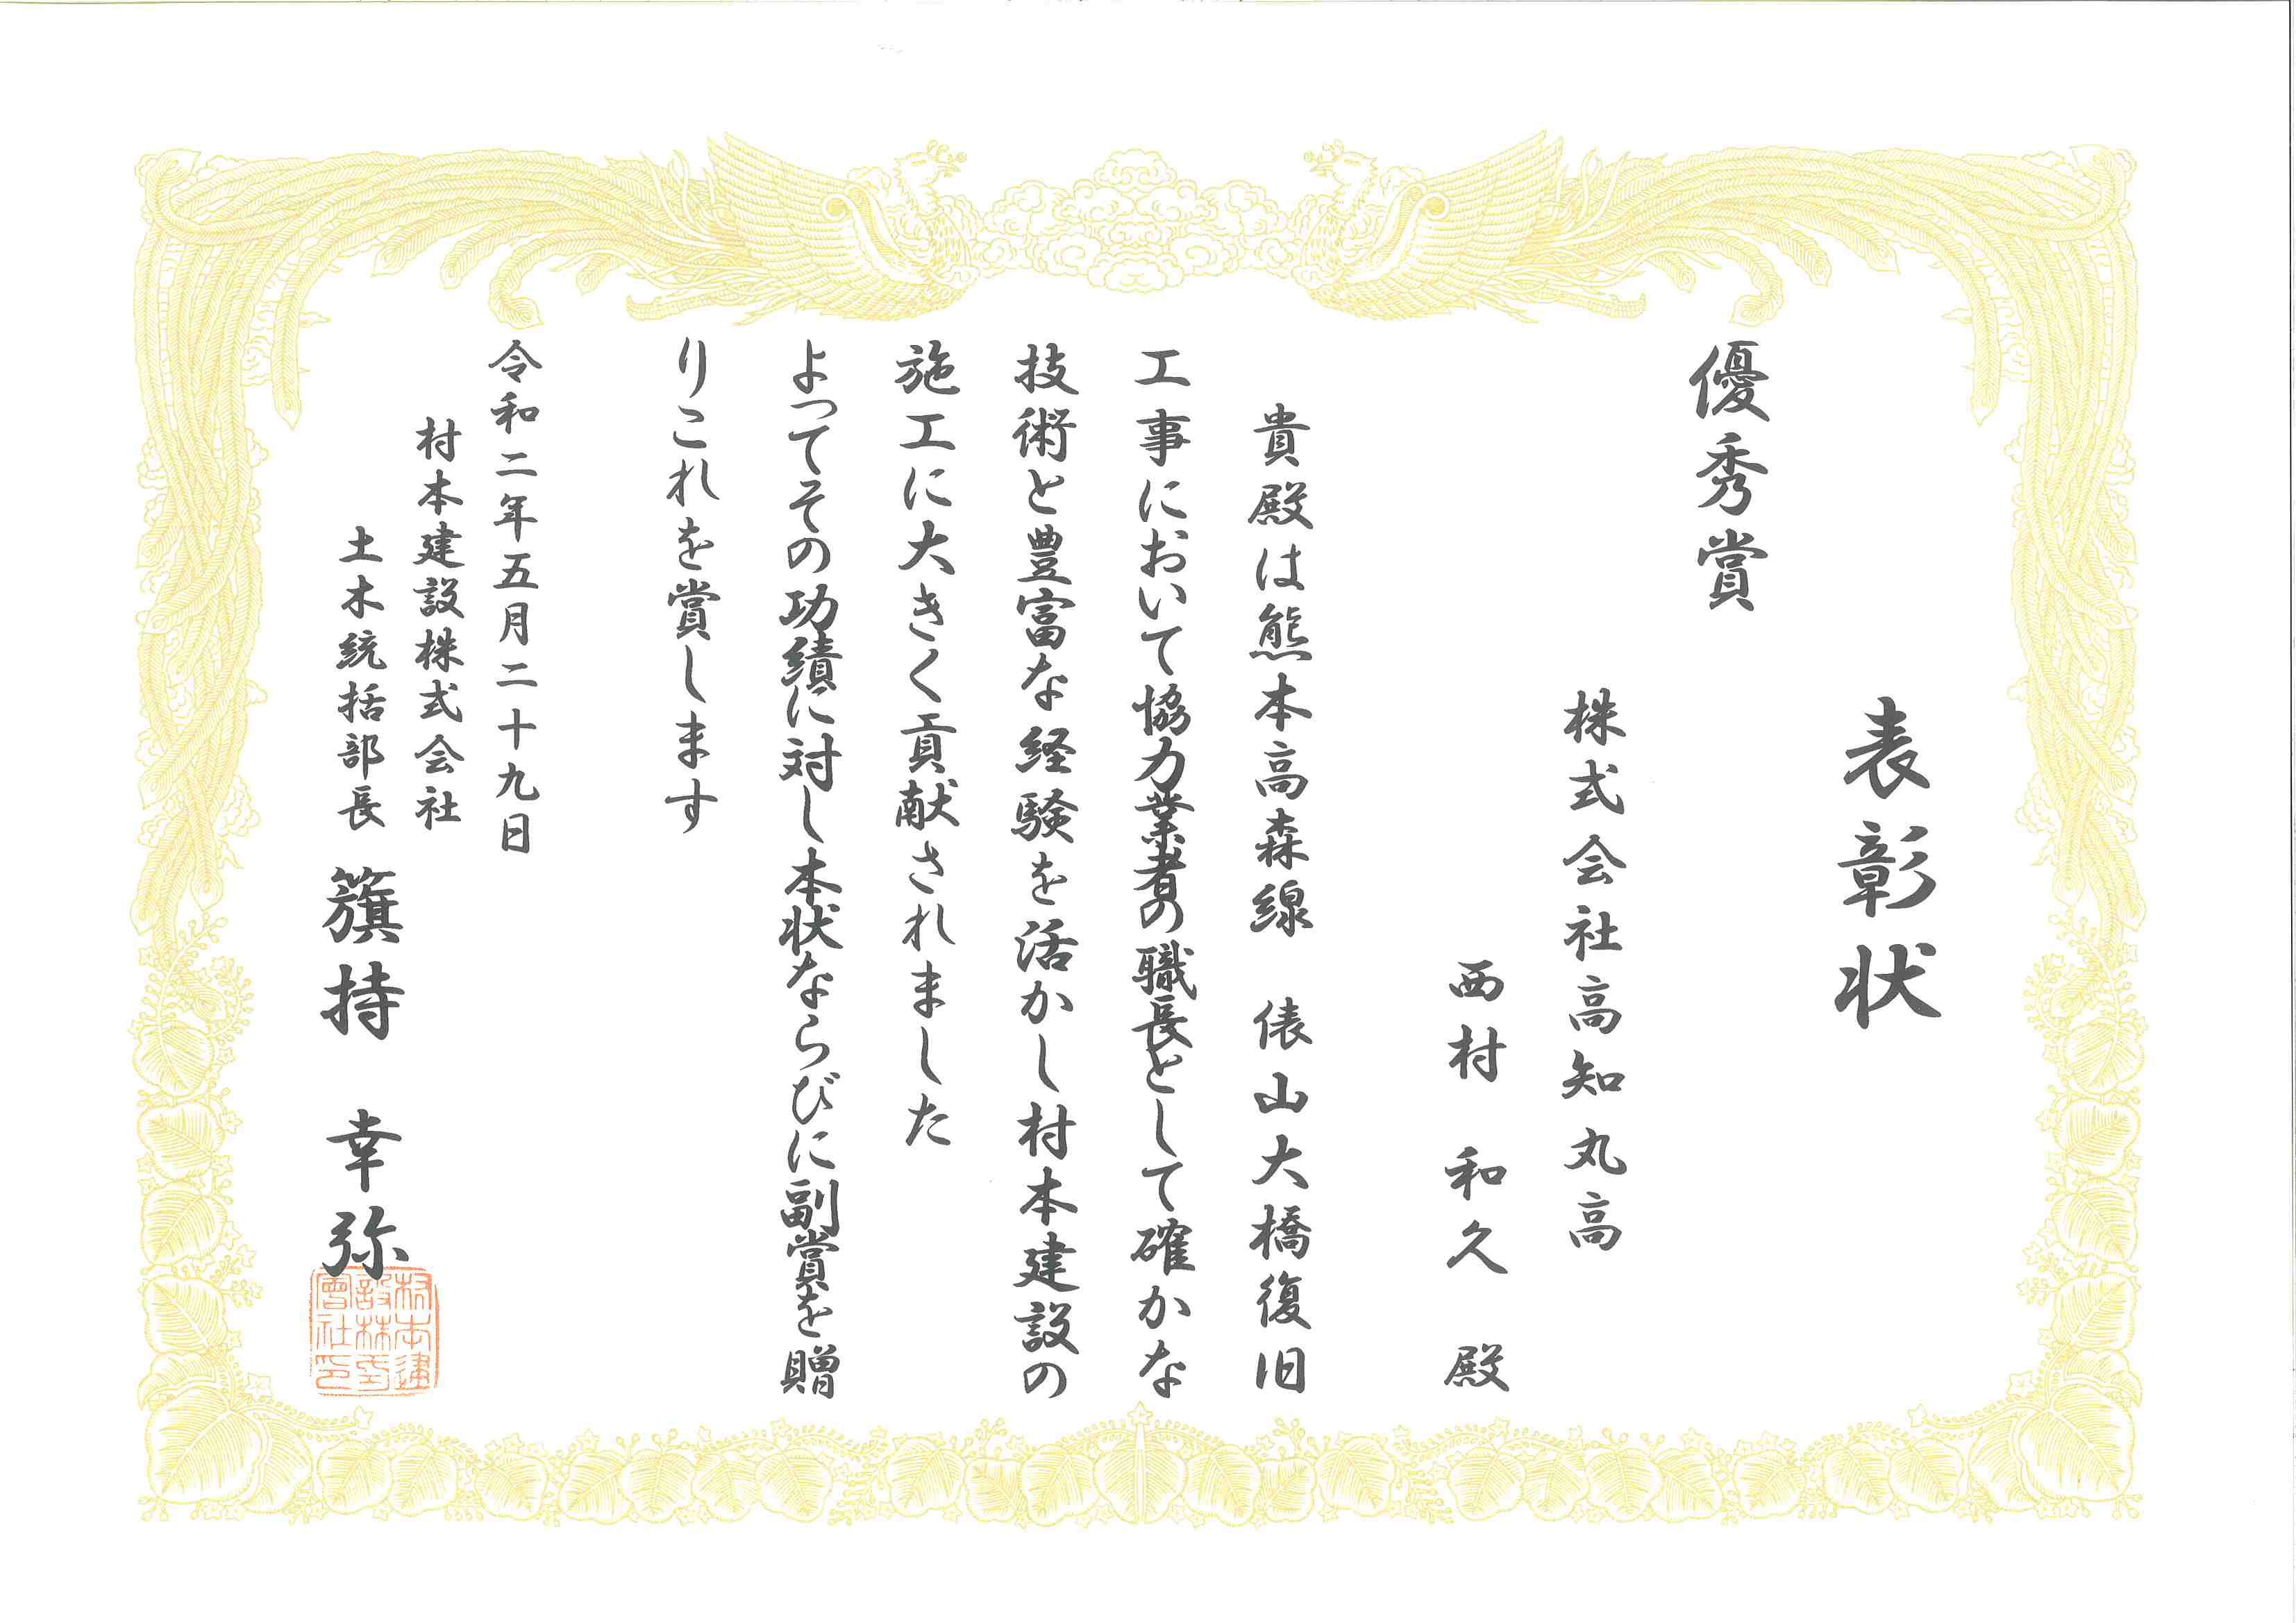 表彰状
優秀賞
株式会社高知丸高
西村 和久 殿
貴殿は熊本高森線 俵山大橋復旧
工事において協力業者の職長として確かな
技術と豊富な経験を活かし村本建設の
施工に大きく貢献されました
よってその功績に対し本状ならびに副賞を贈
りこれを賞します
令和二年五月二十九日
村本建設株式会社
土木統括部長 籏持 幸弥
村本建
設株式
會社印